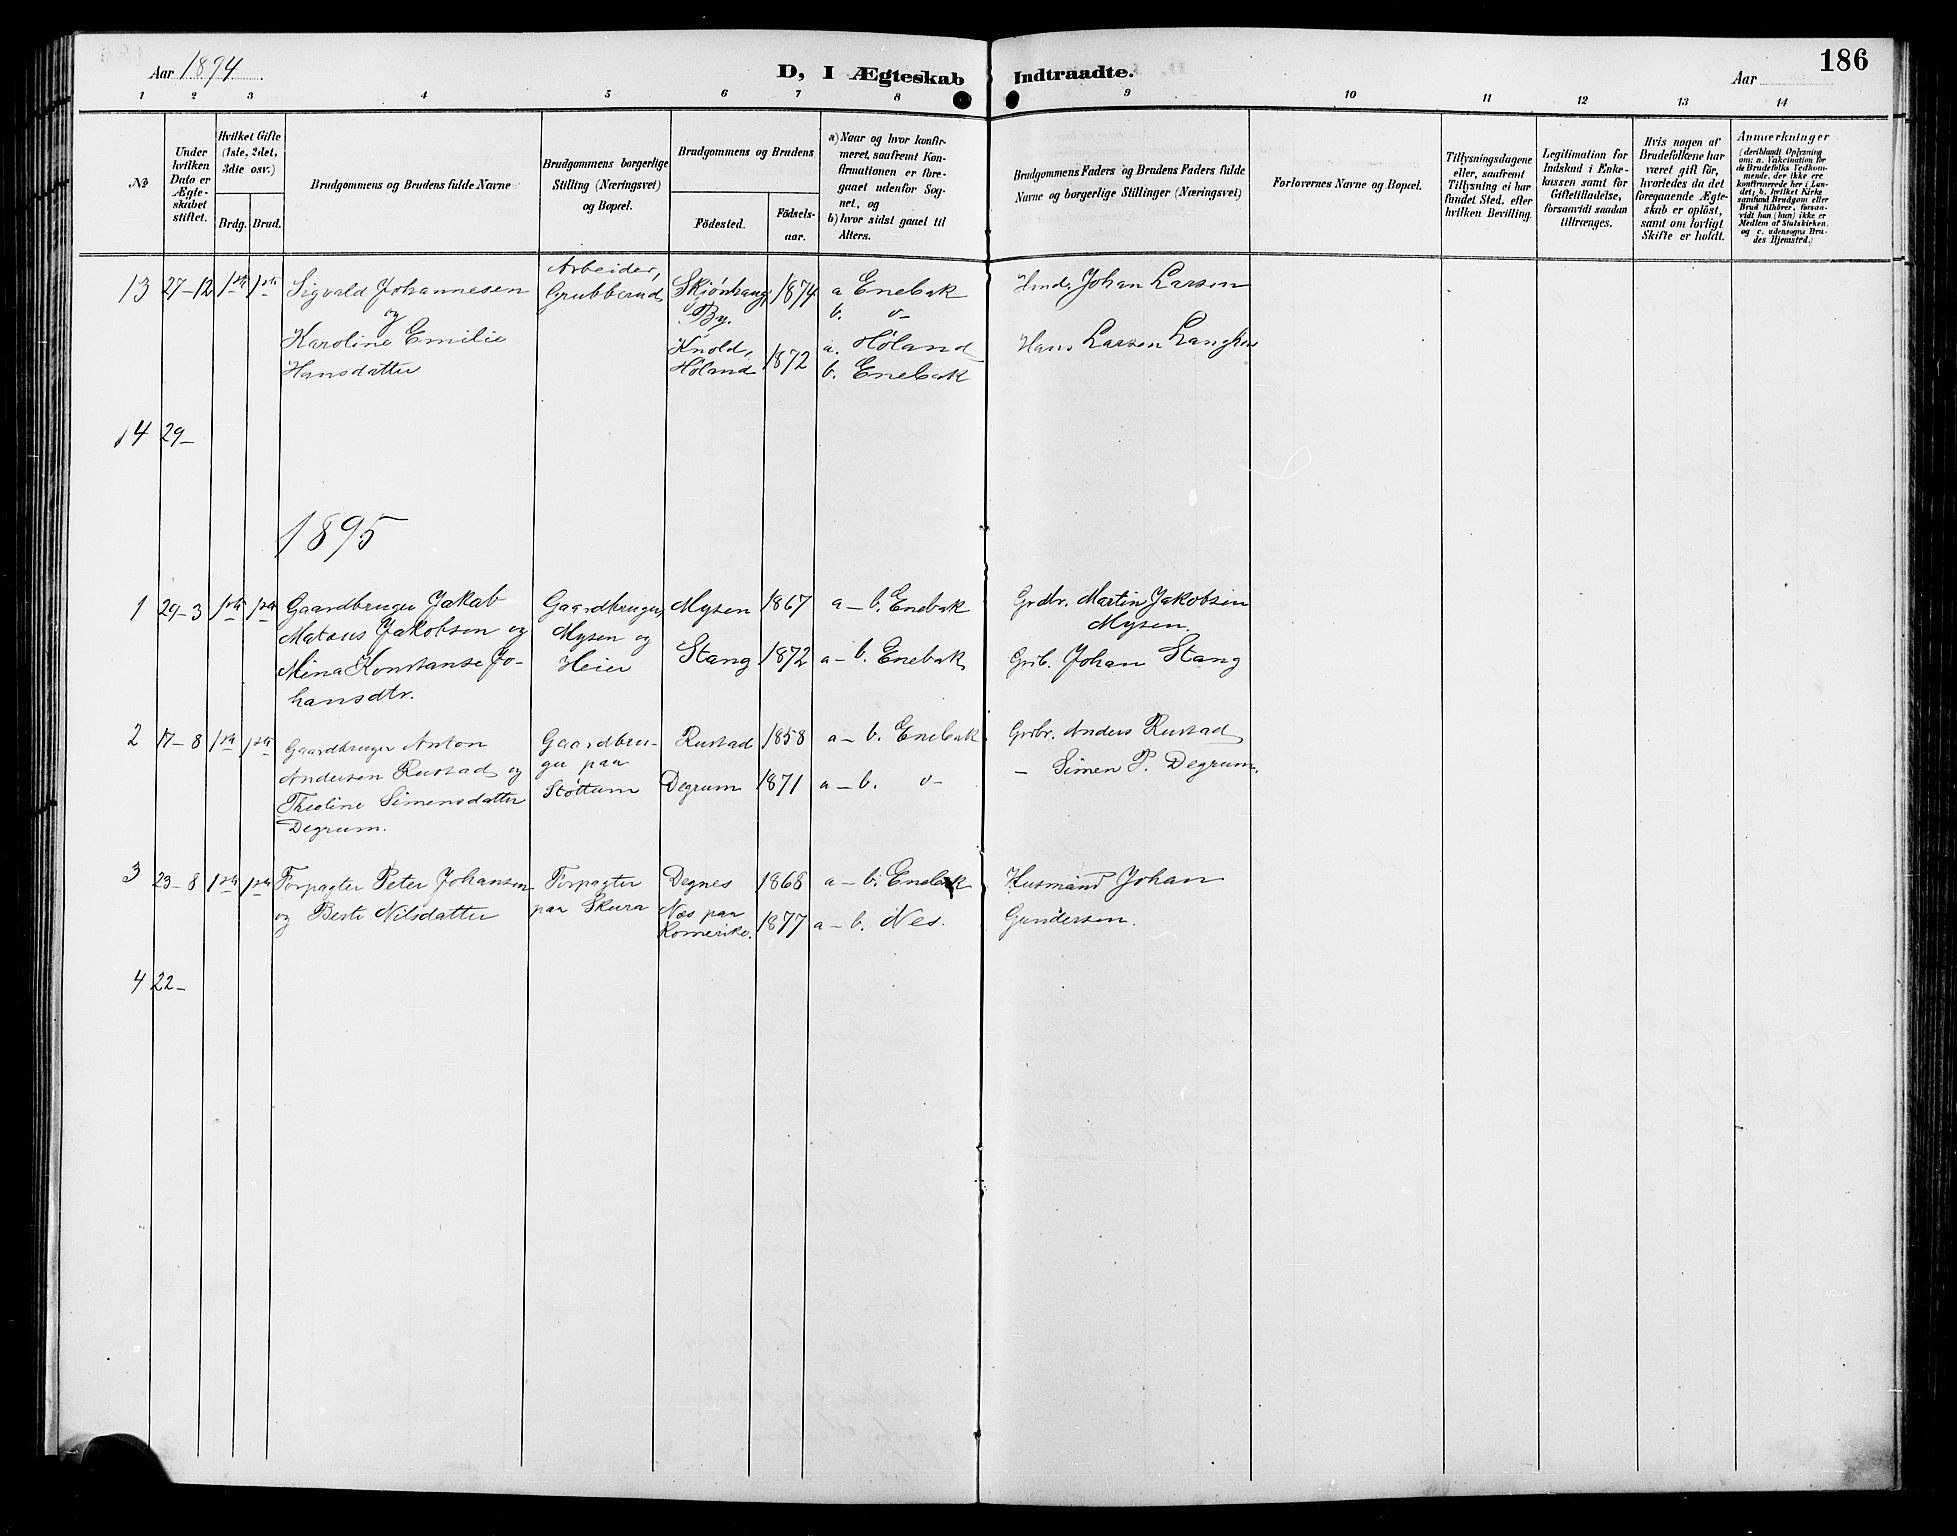 Aar 1894. D, I Ægteskab Indtraadte. Aar 186
1 2 3 4 5 6 7 8 9 10 11 12 13 14
No
Under hvilken Dato er Ægteskabet stiftet.
Hvilket Gifte (1ste, 2det, 3die osv.)
Brdg. Brud.
Brudgommens og Brudens fulde Navne
Brudgommens borgerlige Stilling (Næringsvei) og Bopæl.
Brudgommens og Brudens
Födested.
Födselsaar.
a) Naar og hvor konfirmeret, saafremt Konfirmationen er foregaaet udenfor Sognet, og
b) hvor sidst gaaet til Alters.
Brudgommens Faders og Brudens Faders fulde Navne og borgerlige Stillinger (Næringsvei)
Forlovernes Navne og Bopæl.
Tillysningsdagene eller, saafremt Tillysning ei har fundet Sted, efter hvilken Bevilling.
Legitimation for Indskud i Enkekassen samt for Giftetilladelse, forsaavidt saadan tiltrænges.
Hvis nogen af Brudefolkene har været gift för, hvorledes da det foregaaende Ægteskab er oplöst, samt om lovligt Skifte er holdt.
Anmærkninger
(deriblandt Oplysning om: a. Vakcination for de Brudefolks Vedkommende, der ikke ere konfirmerede her i Landet; b. hvilket Kirkesamfund Brudgom eller Brud tilhörer, forsaavidt han (hun) ikke er Medlem af Statskirken, og c. udensogns Brudes Hjemsted.)
13 27-12 1ste 1ste Sigvald Johannesen
og
Karoline Emilie
Hansdatter
Arbeider,
Grubberud
Skjønhaug,
By. 1874
Knold,
Høland 1872
a Enebak
b. v-
a. Høland
b. Enebak
Hmd. Johan Larsen
Hans Larsen
14 29-
1895
1 29-3 1ste 1ste Gaardbruger Jakob
Mataus Jakobsen og
Mina Konstanse Jo-
hansdtr.
Gaardbruger,
Mysen og
Heier
Mysen 1867 a-b. Enebak
Stang 1872 a-b. Enebak
Grdbr. Martin Jakobsen
Mysen.
Grdb. Johan Stang
2 17-8 1ste 1ste Gaardbruger Anton
Andersen Rustad og
Theoline Simensdatter
Degrum.
Gaardbru-
ger paa
Støttum
Rustad 1858 a-b. Enebak
Degrum 1871 a-b. v-
Grdbr. Anders Rustad
- Simen P. Degrum.
3 23-8 1ste 1ste Forpagter Peter Johansen
og Berte Nilsdatter
Forpagter
paa Skura
Degnes 1868 a-b. Enebak
Næs paa
Romerike. 1877 a-b. Nes.
Husmand Johan
Gundersen.
4 22-